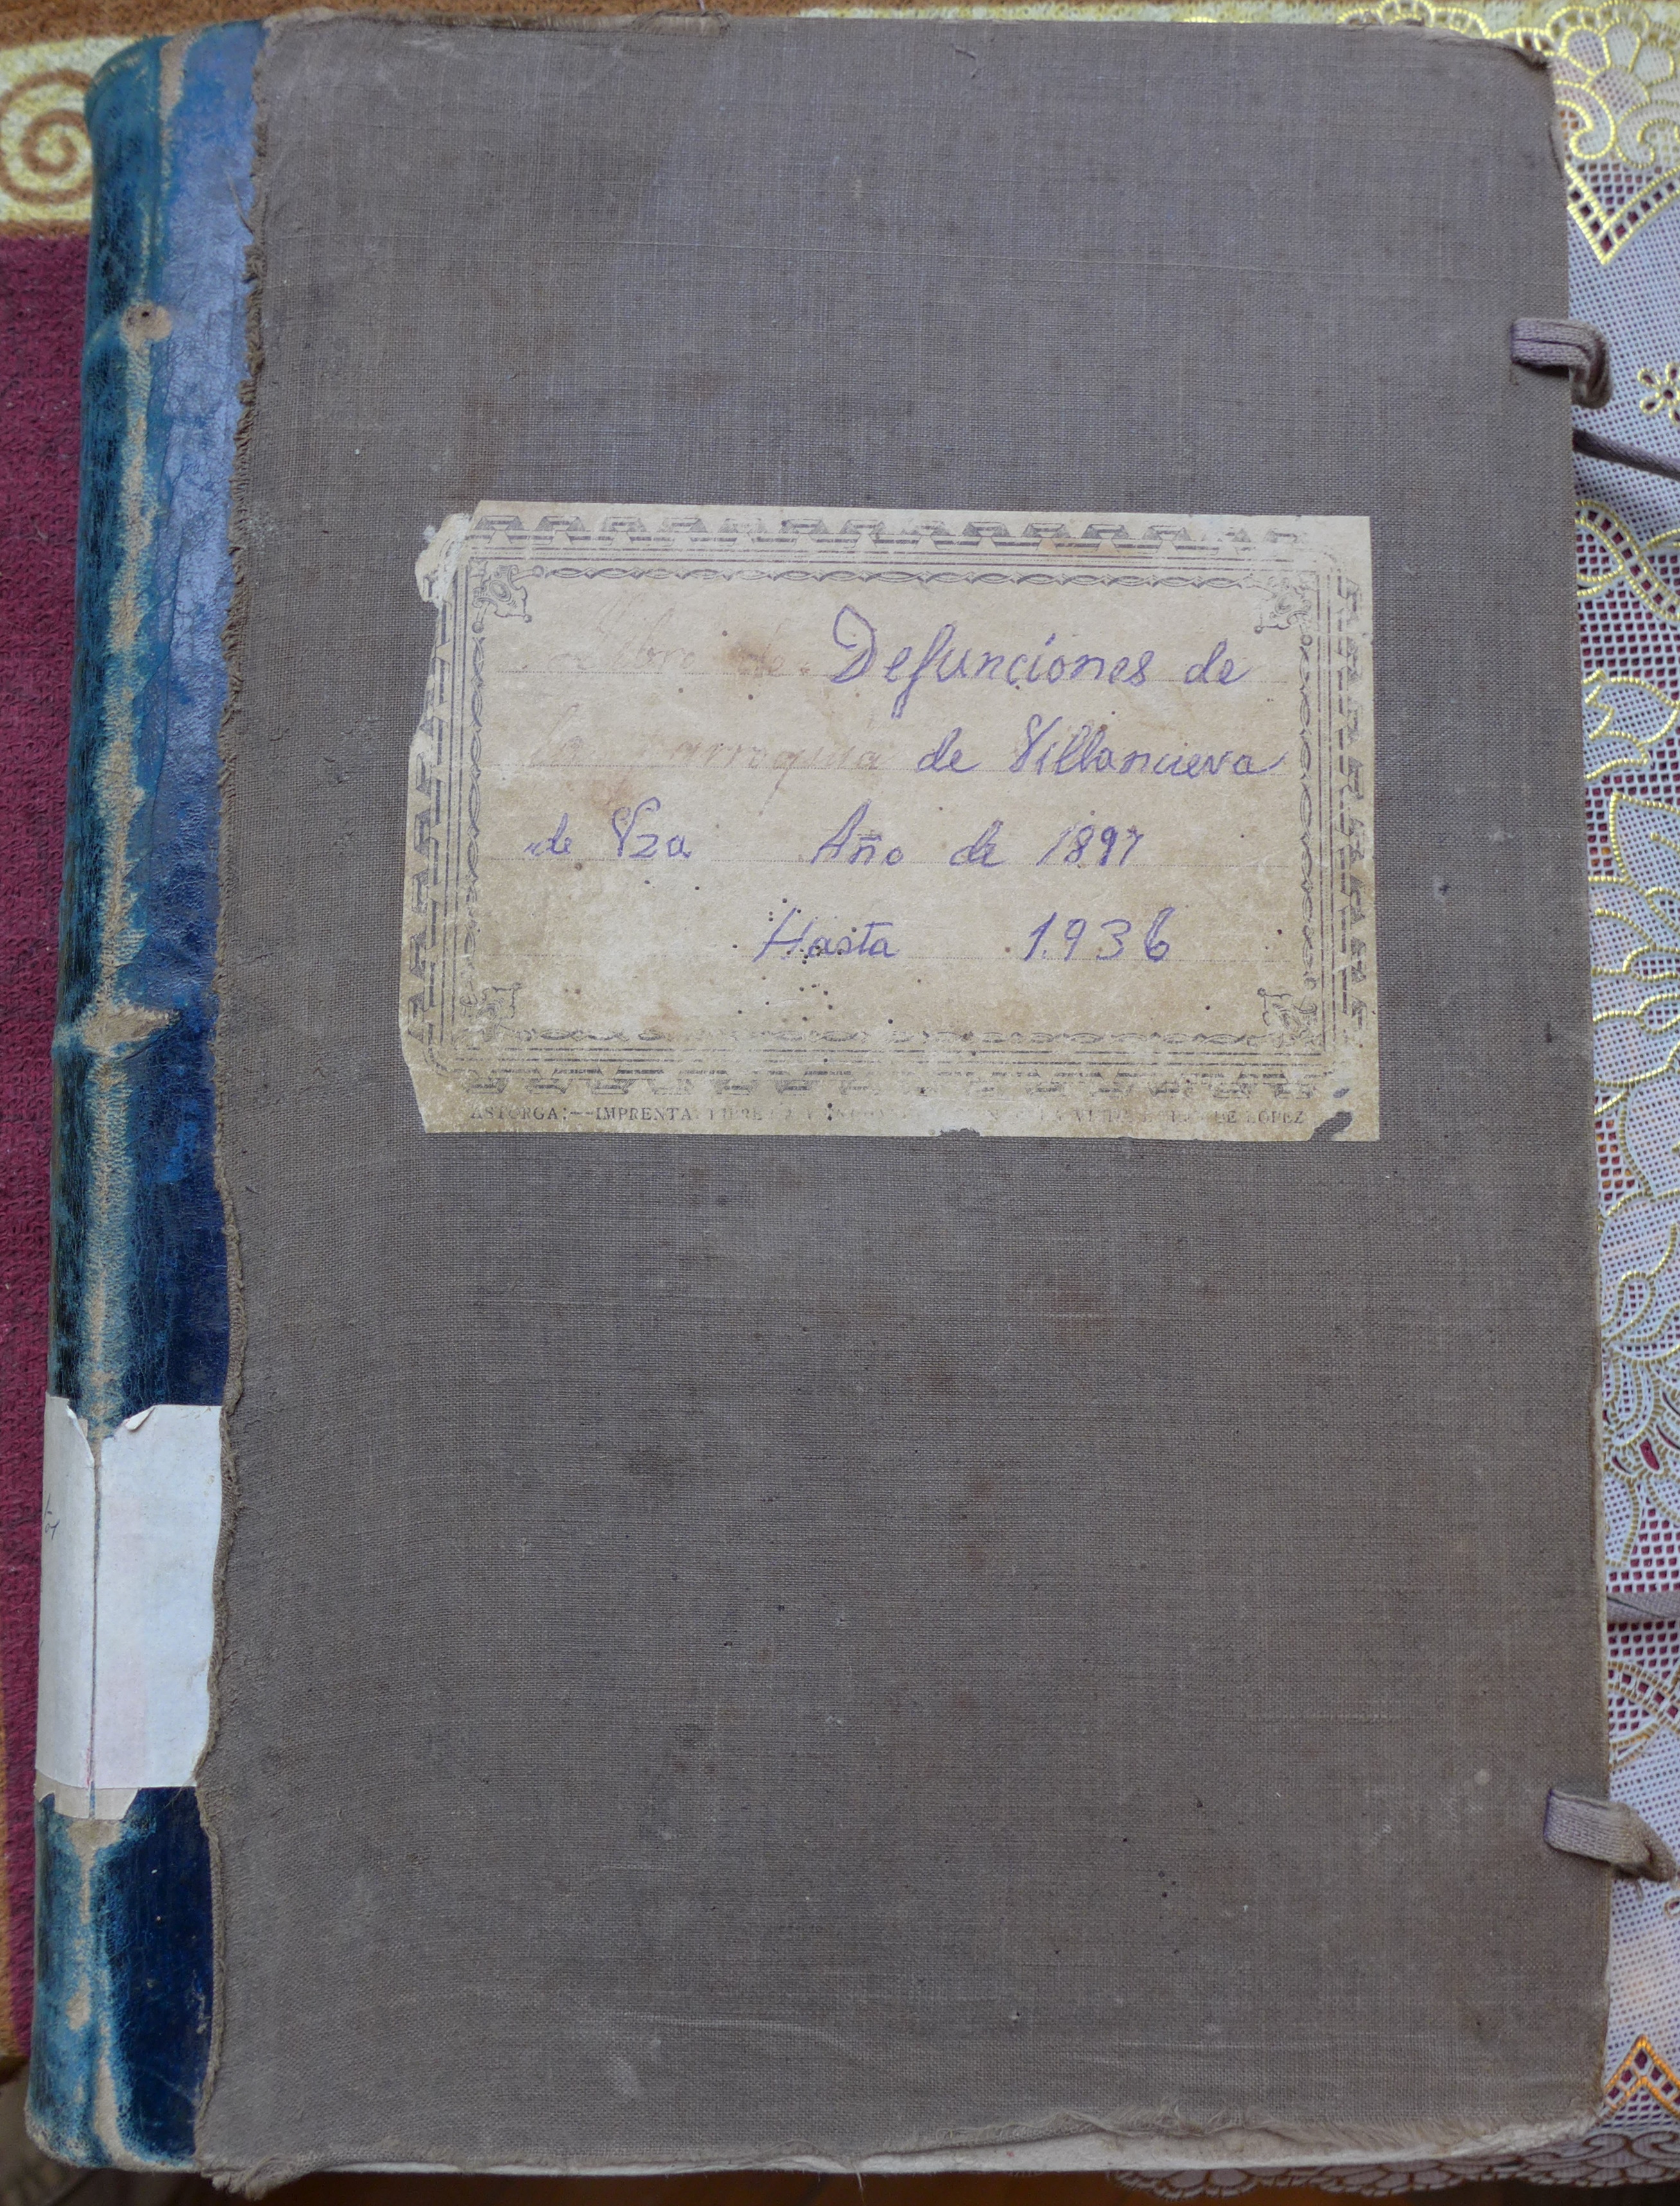 Libro de Defunciones de
la Parroquia de Villanueva
de Vza Año de 1897
Hasta 1936
ASTORGA:--IMPRENTA DE LOPEZ